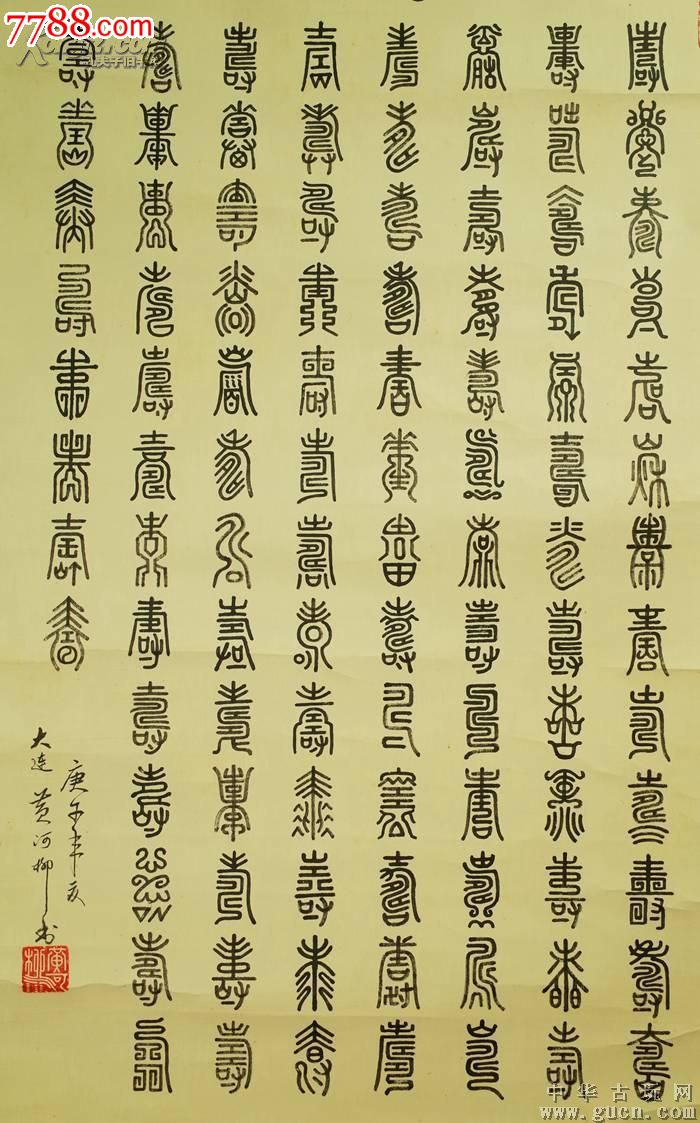 壽壽壽壽壽壽壽壽壽壽壽壽壽
壽壽壽壽壽壽壽壽壽壽壽壽壽
壽壽壽壽壽壽壽壽壽壽壽壽壽
壽壽壽壽壽壽壽壽壽壽壽壽壽
壽壽壽壽壽壽壽壽壽壽壽壽壽
壽壽壽壽壽壽壽壽壽壽壽壽壽
壽壽壽壽壽壽壽壽壽壽壽壽壽
壽壽壽壽壽壽壽壽
庚午年夏
大连黄河柳书
7788.com
中华古玩网
www.gucn.com